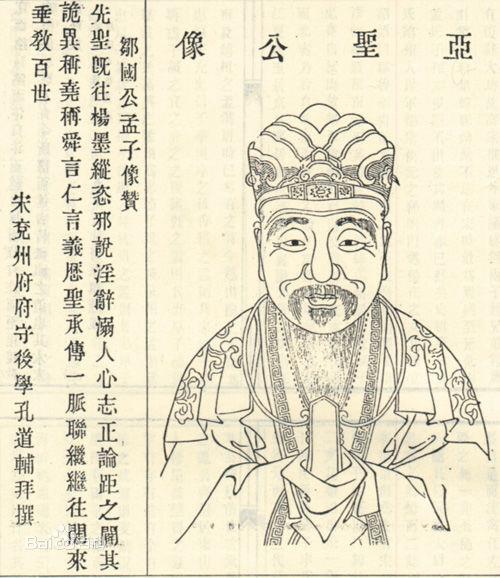 亞聖公像
鄒國公孟子像贊
先聖旣往楊墨縱恣邪說淫辭溺人心志正論距之闢其
詭異稱堯稱舜言仁言義歷聖承傳一脈聯繼繼往開來
垂敎百世
宋兗州府府守後學孔道輔拜撰